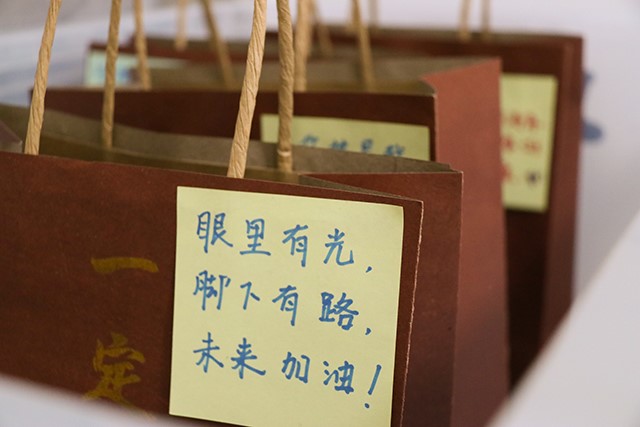 眼里有光，
脚下有路，
未来加油！
一定